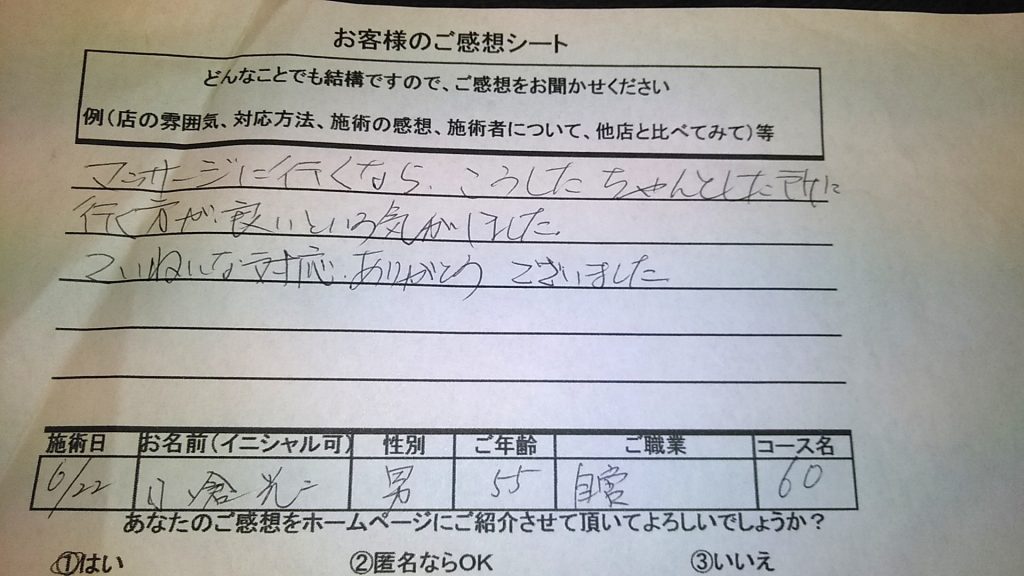 お客様のご感想シート
どんなことでも結構ですので、ご感想をお聞かせください
例(店の雰囲気、対応方法、施術の感想、施術者について、他店と比べてみて)等
マッサージに行くなら、こうした ちゃんとした所に
行く方が良いという気がしました
ていねいな対応、ありがとう ございました
施術日 お名前(イニシャル可) 性別 ご年齢 ご職業 コース名
6/22 小倉光二 男 55 自営 60
あなたのご感想をホームページにご紹介させて頂いてよろしいでしょうか?
①はい ②匿名ならOK ③いいえ